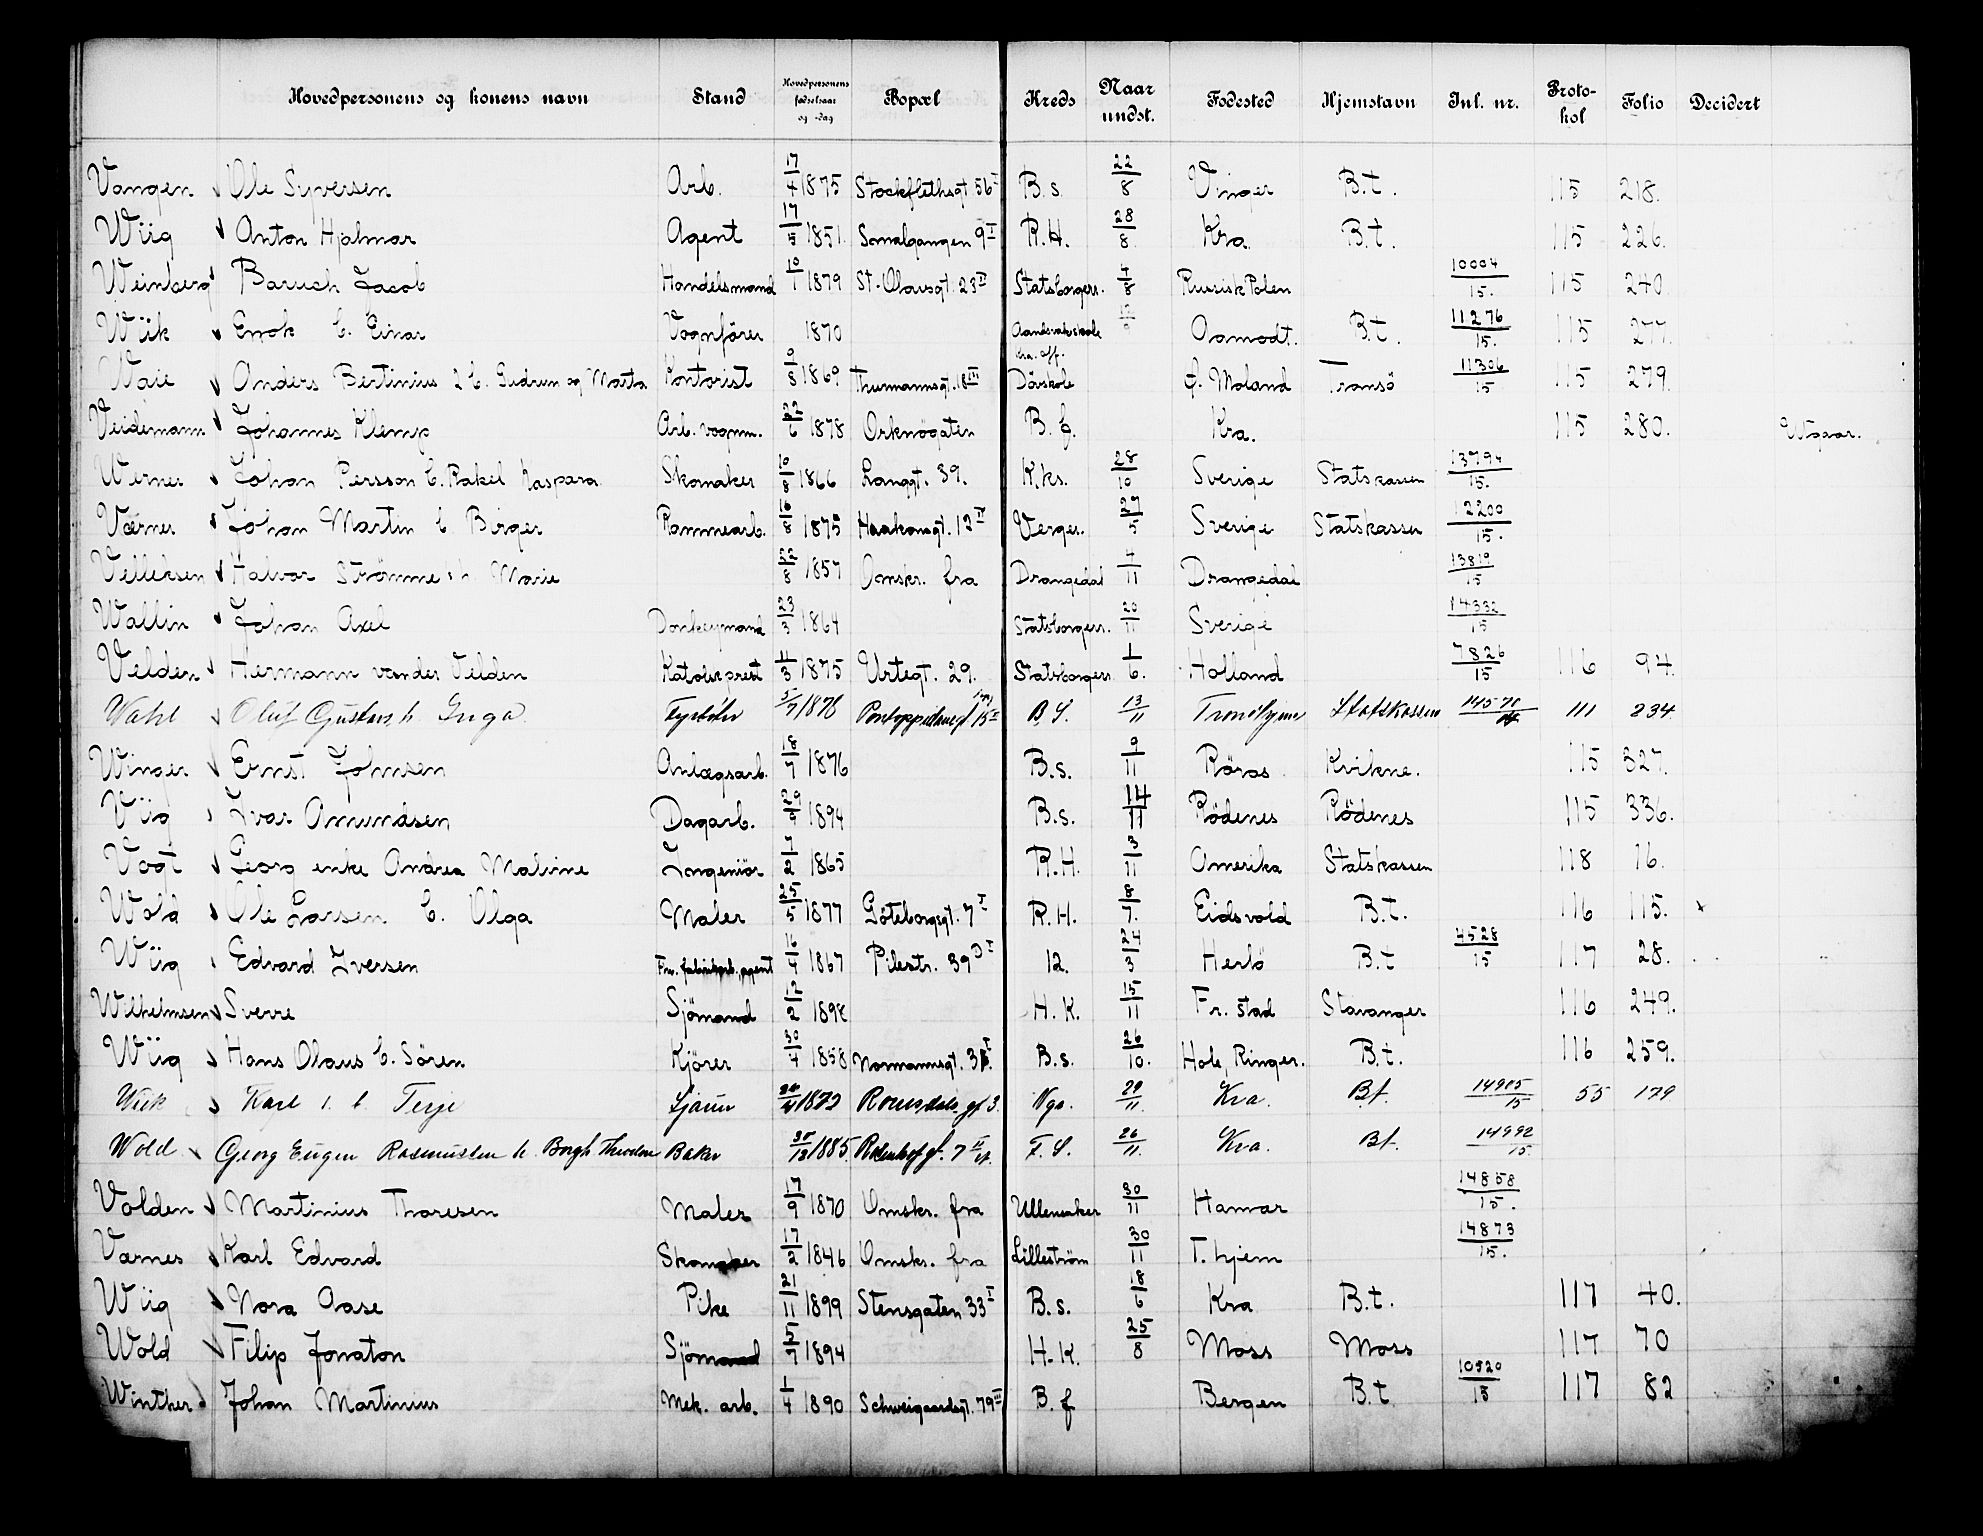 Hovedpersonens og konens navn Stand Hovedpersonens fødselsaar og -dag Bopæl Kreds Naar undst. Fødested Hjemstavn Inl. nr. Protokol Folio Decidert
Vangen Ole Syversen Arb. 17/4 1875 Stockflethsgt 56 I B.s. 22/8 Vinger B.t. 115 218.
Wiig Anton Hjalmar Agent 17/5 1851 Smalgangen 9 I R.H. 28/8 Kra. B.t. 115 226.
Weinberg Baruch Jacob Handelsmand 10/1 1879 St. Olavsgt. 23 II Statsborgerr. 4/8 Russisk Polen 10004/15. 115 240.
Wiik Enok b. Einar Vognfører 1870 Aandsvakskole Aamodt. B.t. 11276/15. 115 277.
Waie Anders Bertinius 2 b. Gudrun og Marta Kontorist 9/8 1869 Thurmannsgt. 18 III Kra. off. Døvskole Ø. Moland Tromsö 11306/15 115 279.
Veidemann Johannes Klemp Arb. vognm. 22/6 1878 Orknögaten B.f. Kra. 115 280. Utgaar.
Werner Johan Persson b. Rakel Kaspara Skomaker 10/8 1866 Langgt. 39. K.ks. 28/10 Sverige Statskassen 13794/15.
Værner Johan Martin b. Birger Rammearb. 16/8 1875 Haakonsgt. 12 IV Verger. 27/5 Sverige Statskassen 12200/15.
Velleksen Halvor Strömme h. Marie 22/8 1857 Omskr. fra Drangedal 4/11 Drangedal 13819/15
Wallin Johan Axel Donkeymand 23/3 1864 Statsborgerr. 20/11 Sverige 14332/15
Velden Hermann vander Velden Katolsk prest 11/3 1875 Urtegt. 29. Statsborgerr. 1/6. Holland 7826/15 116 94.
Wahl Oluf Gustav h. Inga Fyrbøter 5/7 1878 Pontoppidansgt 15 II B.S. 13/11 Trondhjem Statskassen 111 234
Winger Ernst Johnsen Anlægsarb. 18/7 1876 B.s. 9/11 Röros Kvikne. 115 327.
Viig Ivar Amundsen Dagarb. 29/9 1894 B.s. 14/11 Rödenes Rödenes 115 336.
Vogt Georg enke Andrea Malvine Ingeniör 7/2 1865 R.H. 3/11 Amerika Statskassen 118 16.
Wold Ole Larsen b. Olga Maler 25/5 1877 Göteborggt. 7 I R.H. 8/7. Eidsvold B.t. 116 115.
Wiig Edvard Iversen Frv. fabrikarb, agent 16/4 1867 Pilestr. 39 D I 12. 24/3 Herlö B.t 4528/15 117 28.
Wilhelmsen Sverre Sjömand 12/2 1898 H.K. 15/11 Fr.stad Stavanger 116 249.
Wiig Hans Olaus b. Sören Kjörer 30/4 1858 Normannsgt. 31 I B.s. 26/10. Hole, Ringer. B.t. 116 259.
Wiik Karl I. b. Terje Sjauer 26/4 1872 Romsdalsgt 3. Vga. 29/11. Kra. Bt. 14905/15 55 179
Wold Georg Eugen Rasmussen h. Borgh. Theodora Baker 1885. Rosenhofgt. 7 II F.S. 26/11. Kra. Bt. 14992/15.
Volden Martinius Thoresen Maler 17/9 1870 Omskr. fra Ullensaker 30/11 Hamar 14858/15.
Værnes Karl Edvard Skomaker 17/2 1846 Omskr. fra Lilleström 30/11 T.hjem 14873/15.
Wiig Nora Aase Pike 21/11 1899 Stensgaten 33 I B.s. 18/6 Kra B.t. 117 40.
Wold Filip Jonaton Sjömand 5/7 1894 H.K. 25/8 Moss Moss 117 70
Winther Johan Martinius Mek. arb. 1/4 1890 Schweigaardsgt. 79 III B.f Bergen B.t. 10520/15 117 82